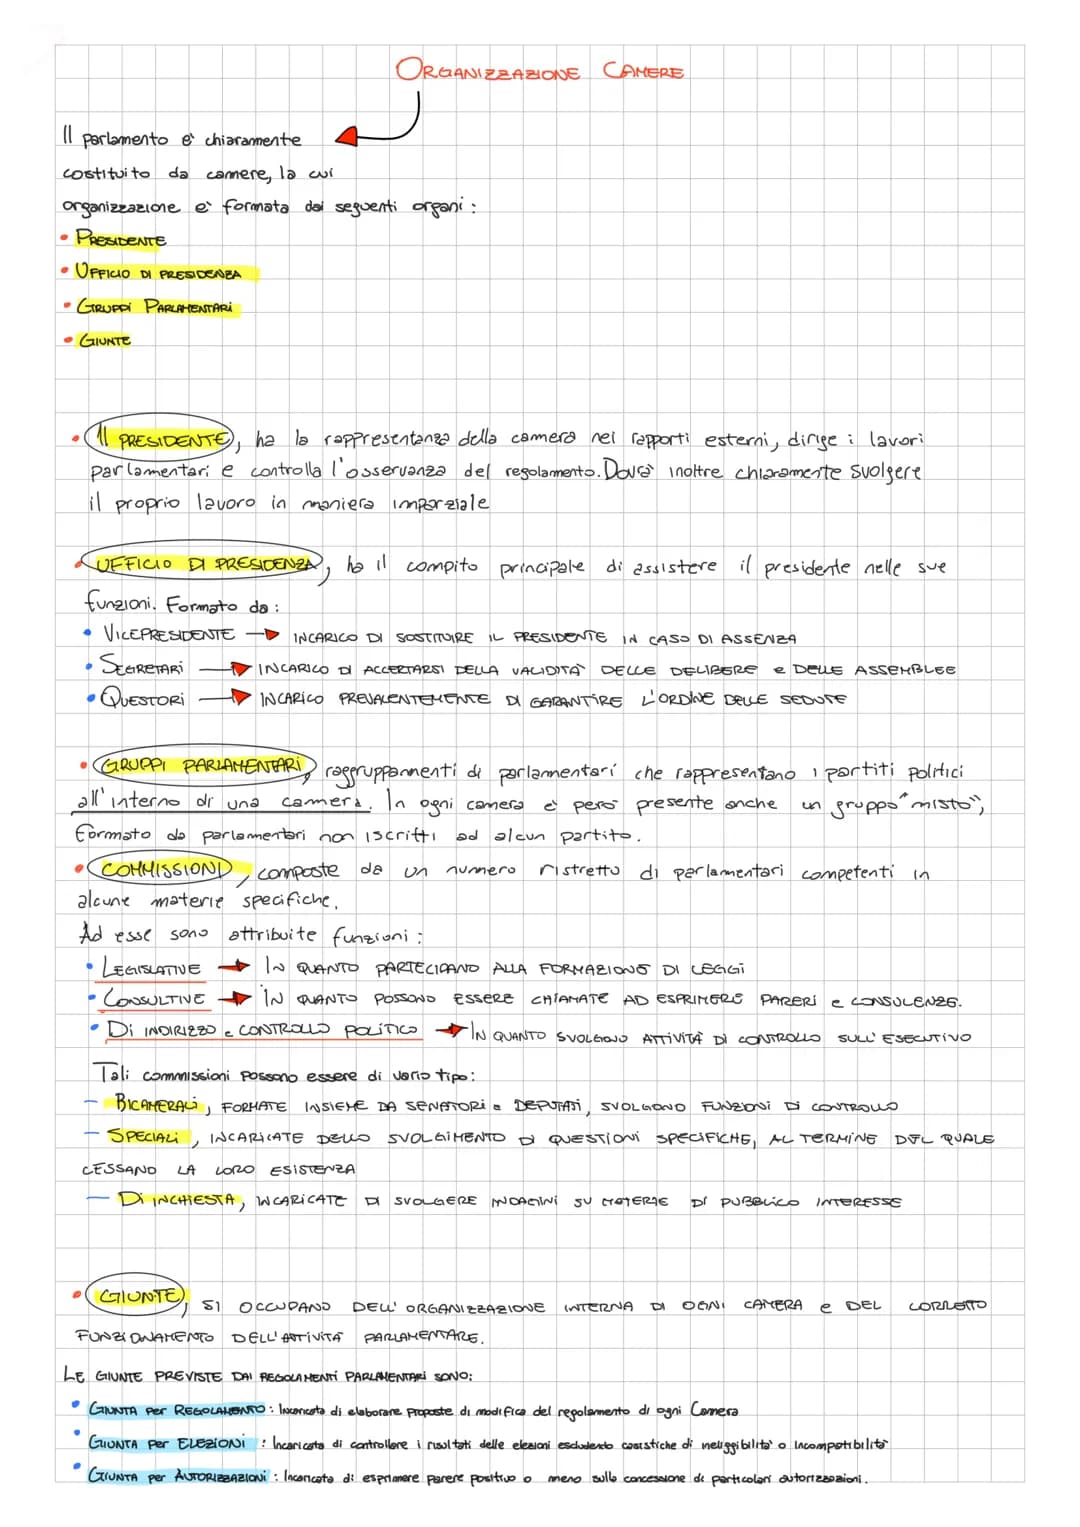 ORGANIZZAZIONE CAMERE
Il parlamento e' chiaramente
costituito da camere, la cui
organizzazione e' formata dai seguenti organi :
• PRESIDENTE
• UFFICIO DI PRESIDENZA
• GRUPPI PARLAMENTARI
• GIUNTE
• Il PRESIDENTE, ha la rappresentanza della camera nei rapporti esterni, dirige i lavori
parlamentari e controlla l'osservanza del regolamento. Dovra' inoltre chiaramente svolgere
il proprio lavoro in maniera imparziale
• UFFICIO DI PRESIDENZA, ha il compito principale di assistere il presidente nelle sue
funzioni. Formato da :
• VICEPRESIDENTE → INCARICO DI SOSTITUIRE IL PRESIDENTE IN CASO DI ASSENZA
• SEGRETARI → INCARICO DI ACCERTARSI DELLA VALIDITA' DELLE DELIBERE e DELLE ASSEMBLEE
• QUESTORI → INCARICO PREVALENTEMENTE DI GARANTIRE L'ORDINE DELLE SEDUTE
• GRUPPI PARLAMENTARI, raggruppamenti di parlamentari che rappresentano i partiti politici
all'interno di una camera. In ogni camera e' pero' presente anche un gruppo "misto",
formato da parlamentari non iscritti ad alcun partito.
• COMMISSIONI, composte da un numero ristretto di parlamentari competenti in
alcune materie specifiche.
Ad esse sono attribuite funzioni :
• LEGISLATIVE → IN QUANTO PARTECIPANO ALLA FORMAZIONE DI LEGGI
• CONSULTIVE → IN QUANTO POSSONO ESSERE CHIAMATE AD ESPRIMERE PARERI e CONSULENZE.
• DI INDIRIZZO e CONTROLLO POLITICO → IN QUANTO SVOLGONO ATTIVITA' DI CONTROLLO SULL'ESECUTIVO
Tali commissioni possono essere di vario tipo :
– BICAMERALI, FORMATE INSIEME DA SENATORI e DEPUTATI, SVOLGONO FUNZIONI DI CONTROLLO
– SPECIALI, INCARICATE DELLO SVOLGIMENTO DI QUESTIONI SPECIFICHE, AL TERMINE DEL QUALE
CESSANO LA LORO ESISTENZA
– DI INCHIESTA, INCARICATE DI SVOLGERE INDAGINI SU MATERIE DI PUBBLICO INTERESSE
• GIUNTE, SI OCCUPANO DELL'ORGANIZZAZIONE INTERNA DI OGNI CAMERA e DEL CORRETTO
FUNZIONAMENTO DELL'ATTIVITA' PARLAMENTARE.
LE GIUNTE PREVISTE DAI REGOLAMENTI PARLAMENTARI SONO:
• GIUNTA Per REGOLAMENTO : Incaricata di elaborare proposte di modifica del regolamento di ogni Camera
• GIUNTA Per ELEZIONI : Incaricata di controllare i risultati delle elezioni escludendo casistiche di ineliggibilita' o incompatibilita'
• GIUNTA per AUTORIZZAZIONI : Incaricata di esprimere parere positivo o meno sulla concessione di particolari autorizzazioni.